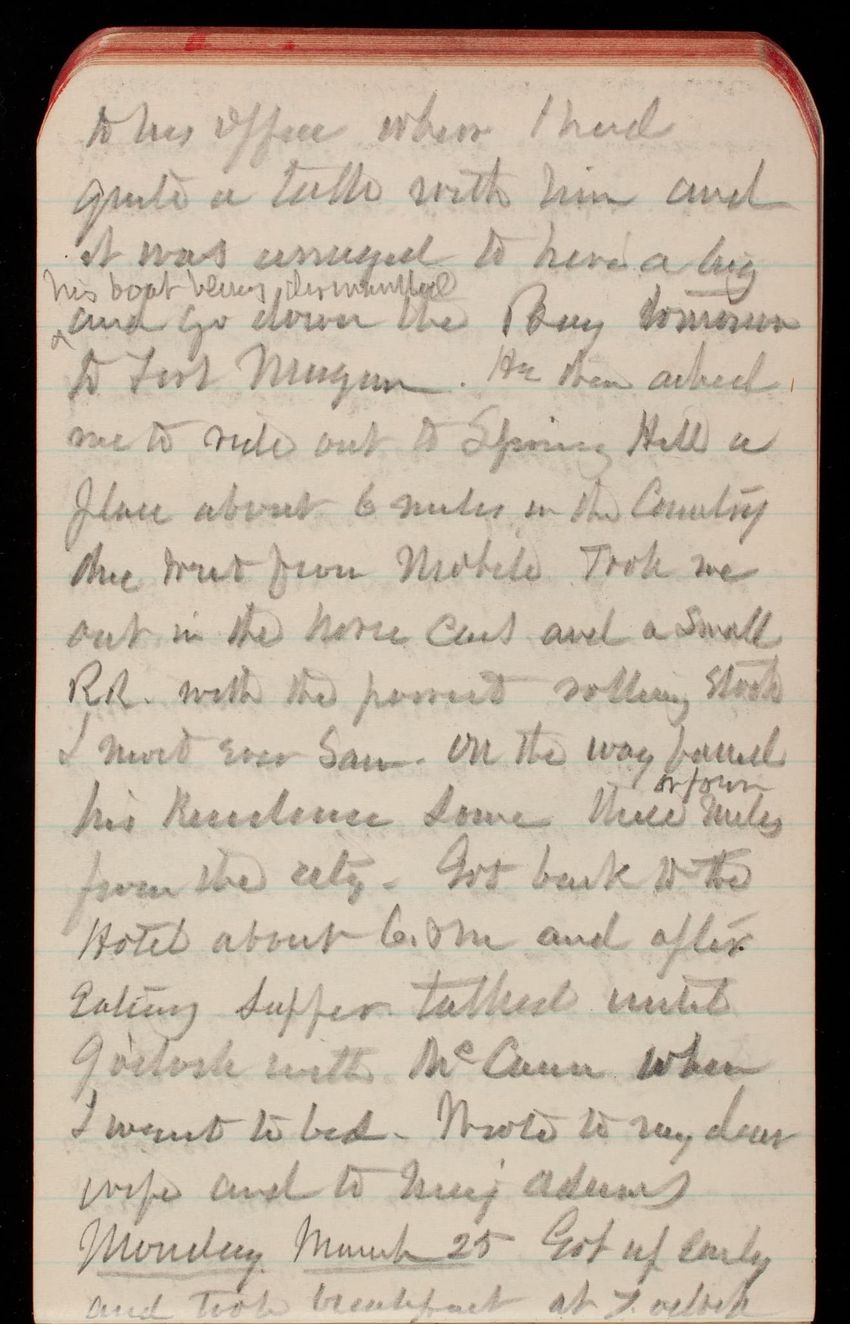 to his office where I had
quite a talk with him and
it was arranged to have a big
his boat being dismantled
and go down the Bay tomorrow
to Fort Morgan. He then asked
me to ride out to Spring Hill a
place about 6 miles in the Country
due West from Mobile Took me
out in the horse cars and a small
RR. with the poorest rolling stock
I most ever saw. On the way passed
or four
his Residence some three miles
from the city. Got back to the
Hotel about 6. Pm and after
Eating supper talked until
9 oclock with McCann when
I went to bed. Wrote to my dear
wife and to Maj Adams
Monday March 25 Got up early
and took breakfast at 7. oclock